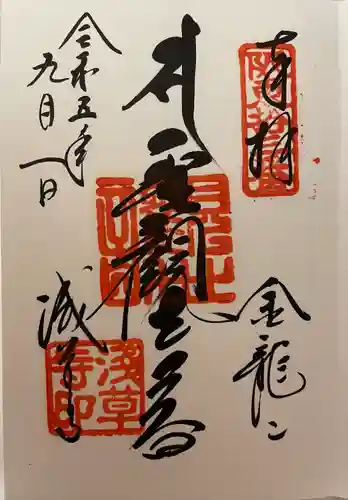 奉拝
金龍山
聖観世音
浅草寺
令和五年
九月一日
浅草
寺印